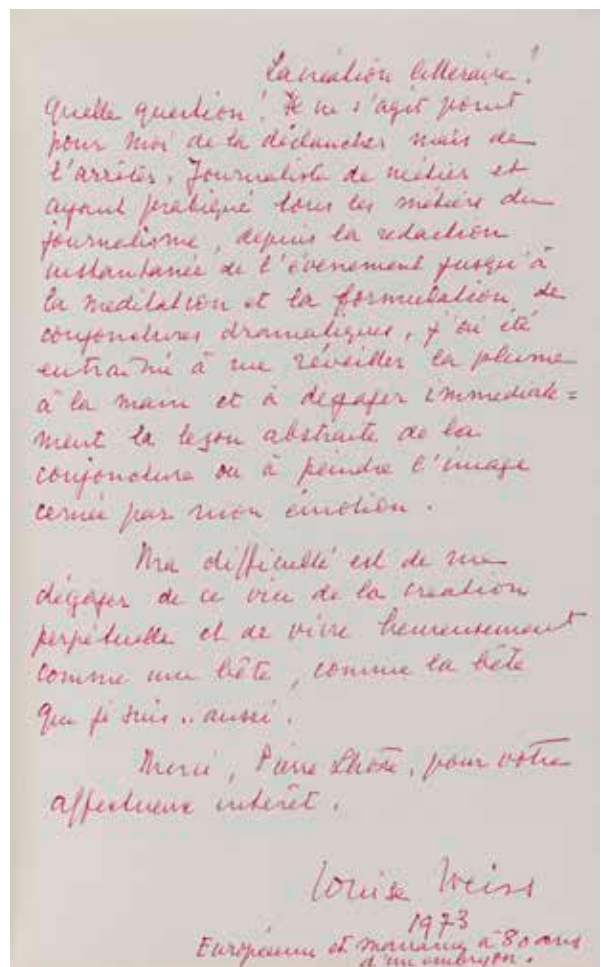 La création littéraire !
Quelle question ! Il ne s'agit point
pour moi de la déclancher mais de
l'arrêter. Journaliste de métier et
ayant pratiqué tous les métiers du
journalisme, depuis la redaction
instantanée de l'évènement jusqu'à
la meditation et la formulation de
conjonctures dramatiques, j'ai été
entrainée à me réveiller la plume
à la main et à dégager immediate=
ment la leçon abstraite de la
conjoncture ou à peindre l'image
cernée par mon émotion.
Ma difficulté est de me
dégager de ce vice de la création
perpétuelle et de vivre heureusement
comme une bête, comme la bête
que je suis .. aussi.
Merci, Pierre Lhoste, pour votre
affectueux intérêt.
Louise Weiss
1973
Européenne et marraine à 80 ans
d'un embryon.